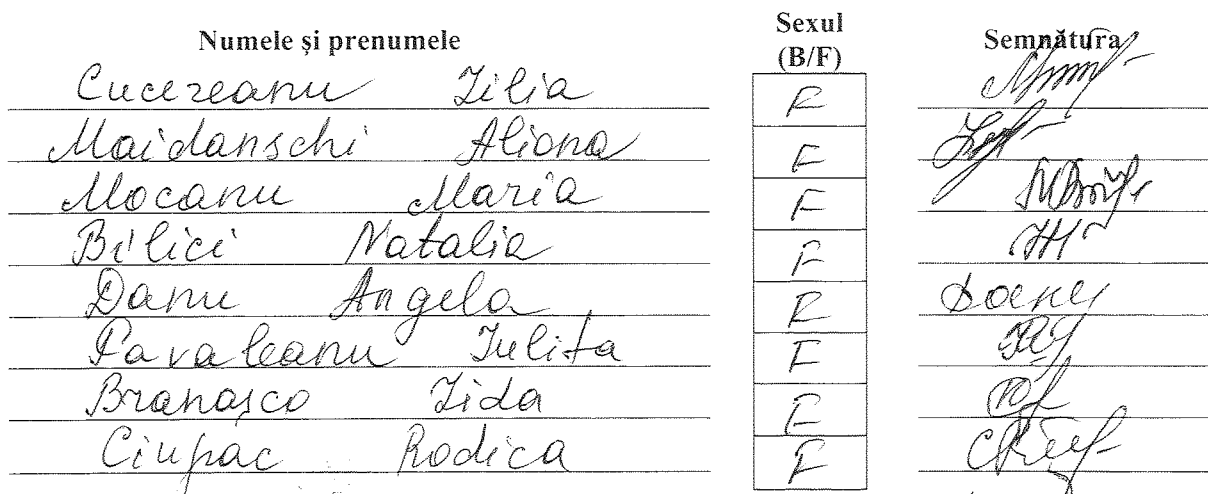 Numele și prenumele Sexul (B/F) Semnătura
Cucereanu Lilia F
Maidanschi Aliona F
Mocanu Maria F
Bilici Natalia F
Danu Angela F
Pavaleanu Iulița F
Branașco Lida F
Ciupac Rodica F